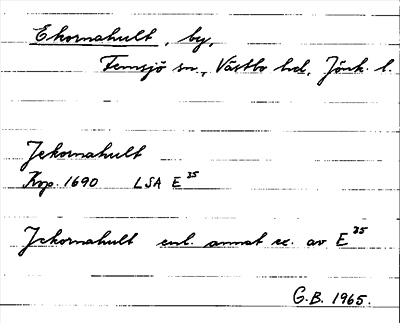 Ekornahult, by,
Femsjö sn, Västbo hd, Jönk. l.
Jekornahult
Kop. 1690 LSA E 35
Jekornahult enl. annat ex. av E 35
G.B. 1965.